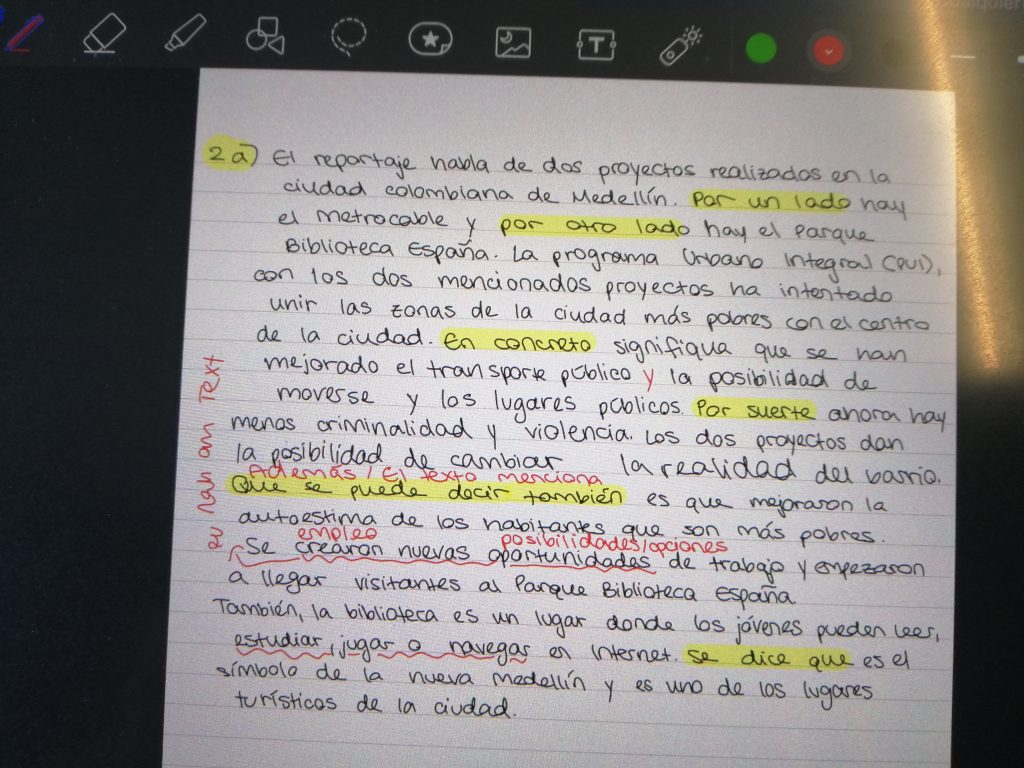 2a) El reportaje habla de dos proyectos realizados en la
ciudad colombiana de Medellín. Por un lado hay
el Metrocable y por otro lado hay el Parque
Biblioteca España. La programa Urbano Integral (PUI),
con los dos mencionados proyectos ha intentado
unir las zonas de la ciudad más pobres con el centro
de la ciudad. En concreto signifiqua que se han
mejorado el transporte público y la posibilidad de
moverse y los lugares públicos. Por suerte ahora hay
menos criminalidad y violencia. Los dos proyectos dan
la posibilidad de cambiar la realidad del barrio.
Además / El texto menciona
Que se puede decir también es que mejoraron la
autoestima de los habitantes que son más pobres.
empleo posibilidades/opciones
Se crearon nuevas oportunidades de trabajo y empezaron
a llegar visitantes al Parque Biblioteca España.
También, la biblioteca es un lugar donde los jóvenes pueden leer,
estudiar, jugar o navegar en Internet. Se dice que es el
símbolo de la nueva Medellín y es uno de los lugares
turísticos de la ciudad.
zu nah am Text
T